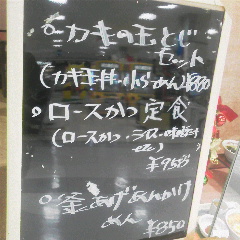 カキの玉とじ
セット
(カキ玉丼・小らーめん ¥880
ロースかつ定食
(ロースかつ・
¥950)
釜あげあんかけ
めん ¥850